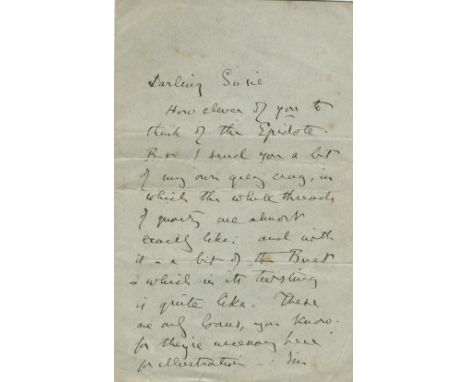 Darling Susie
How clever of you to
think of the Epidote.
But I send you a bit
of my own grey crag, in
which the white threads
of quartz are almost
exactly like: and with
it - a bit of the
- which in its twisting
is quite like. These
are only loans, you know.
for they're necessary here
for illustration.